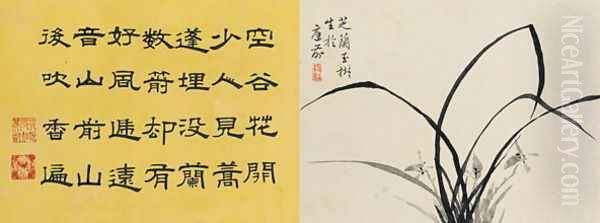 芝蘭玉樹
生於
庭前
空谷花開
少人見蒿
蓬埋没蘭
数箭却有
好風逓遠
音山前山
後吹香遍
NiceArtGallery.com